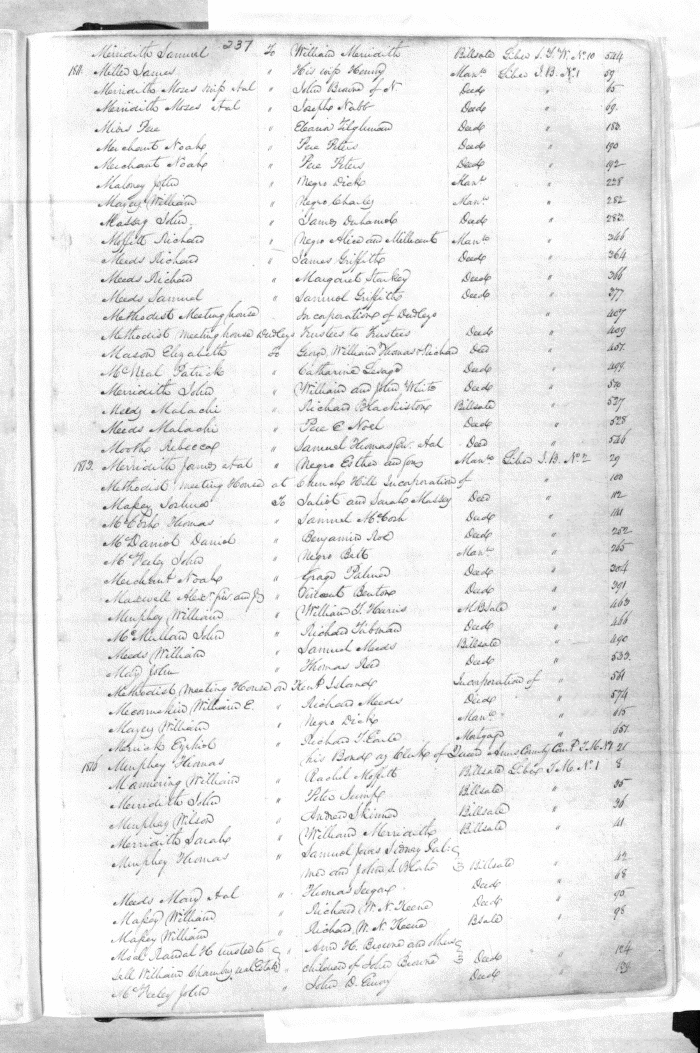 237
Meridith Samuel To William Meridith Billsale Liber S. T. W. No. 10 544
1811 Miller James " His wife Henny Mann Liber I. B. No. 1 59
Merridith Moses wife & al " John Brown of N. Deed " 65
Merridith Moses & al " Joseph Nabb Deed " 69
Miers Pere " Eleanor Tilghman Deed " 183
Merchant Noah " Pere Peters Deed " 190
Merchant Noah " Pere Peters Deed " 192
Maloney John " Negro Dick Man. " 228
Maxey William " Negro Charles Man. " 282
Massey John " James Duhamel Deed " 283
Moffitt Richard " Negro Alice and Millecent Man. " 346
Meeds Richard " James Griffith Deed " 364
Meeds Richard " Margaret Starkey Deed " 366
Meeds Samuel " Samuel Griffith Deed " 377
Methodist Meeting house Incorporation of Dudleys " 407
Methodist meeting house Dudleys Trustees to Trustees Deed " 409
Mason Elizabeth To George, William Thomas & Richard Deed " 457
McNeal Patrick " Catharine Deed " 499
Merridith John " William and John White Deed " 510
Meeds Malachi " Richard Blackiston Billsale " 527
Meeds Malachi " Pere E Noel Deed " 528
Mooth Rebecca " Samuel Thomas & al Deed " 546
1812 Merridith James & al " Negro Esther and son Man. Liber I. B. No. 2 29
Methodist meeting House at Church Hill Incorporation of " 100
Maxey Joshua To Juliet and Sarah Massey Deed " 112
McCosh Thomas " Samuel McCosh Deed " 181
McDaniel Daniel " Benjamin Roe Deed " 252
McFeeley John " Negro Bett Man. " 265
Merchant Noah " Palmer Deed " 304
Maxwell Alexr " Vincent Benton Deed " 391
Murphey William " William T. Harris M. B Sale " 463
McMullan John " Richard Tubman Deed " 466
Meeds William " Samuel Meeds Billsale " 490
May John " Thomas Deed " 533
Methodist Meeting House on Kent Island Incorporation of " 561
Mecomikin William E. " Richard Meeds Deed " 574
Maxey William " Negro Dick Man. " 615
Merrick Ezekiel " Richard T. Earle Mortgage " 657
1815 Murphey Thomas his Bond as Clerk of Queen Anns County Ct. T. M. No. 1 21
Mannering William " Rachel Moffitt Billsale Liber T. M. No. 1 8
Merridith John " Peter Jump Billsale " 35
Murphey Wilson " Andrew Skinner Billsale " 36
Merridith Sarah " William Merridith Billsale " 41
Murphey Thomas " Samuel Jonas Sidney
and John S. Blake Billsale " 42
Meeds Mary & al " Thomas Segar Deed " 68
Maxey William " Richard W. N. Keene Deed " 95
Maxey William " Richard W. N. Keene Bsale " 98
Randal H trusted to " Ann H. Browne and others
Sell William Chambers real Estate " children of John Browne Deed " 124
McFeeley John " John D. Emory Deed " 139